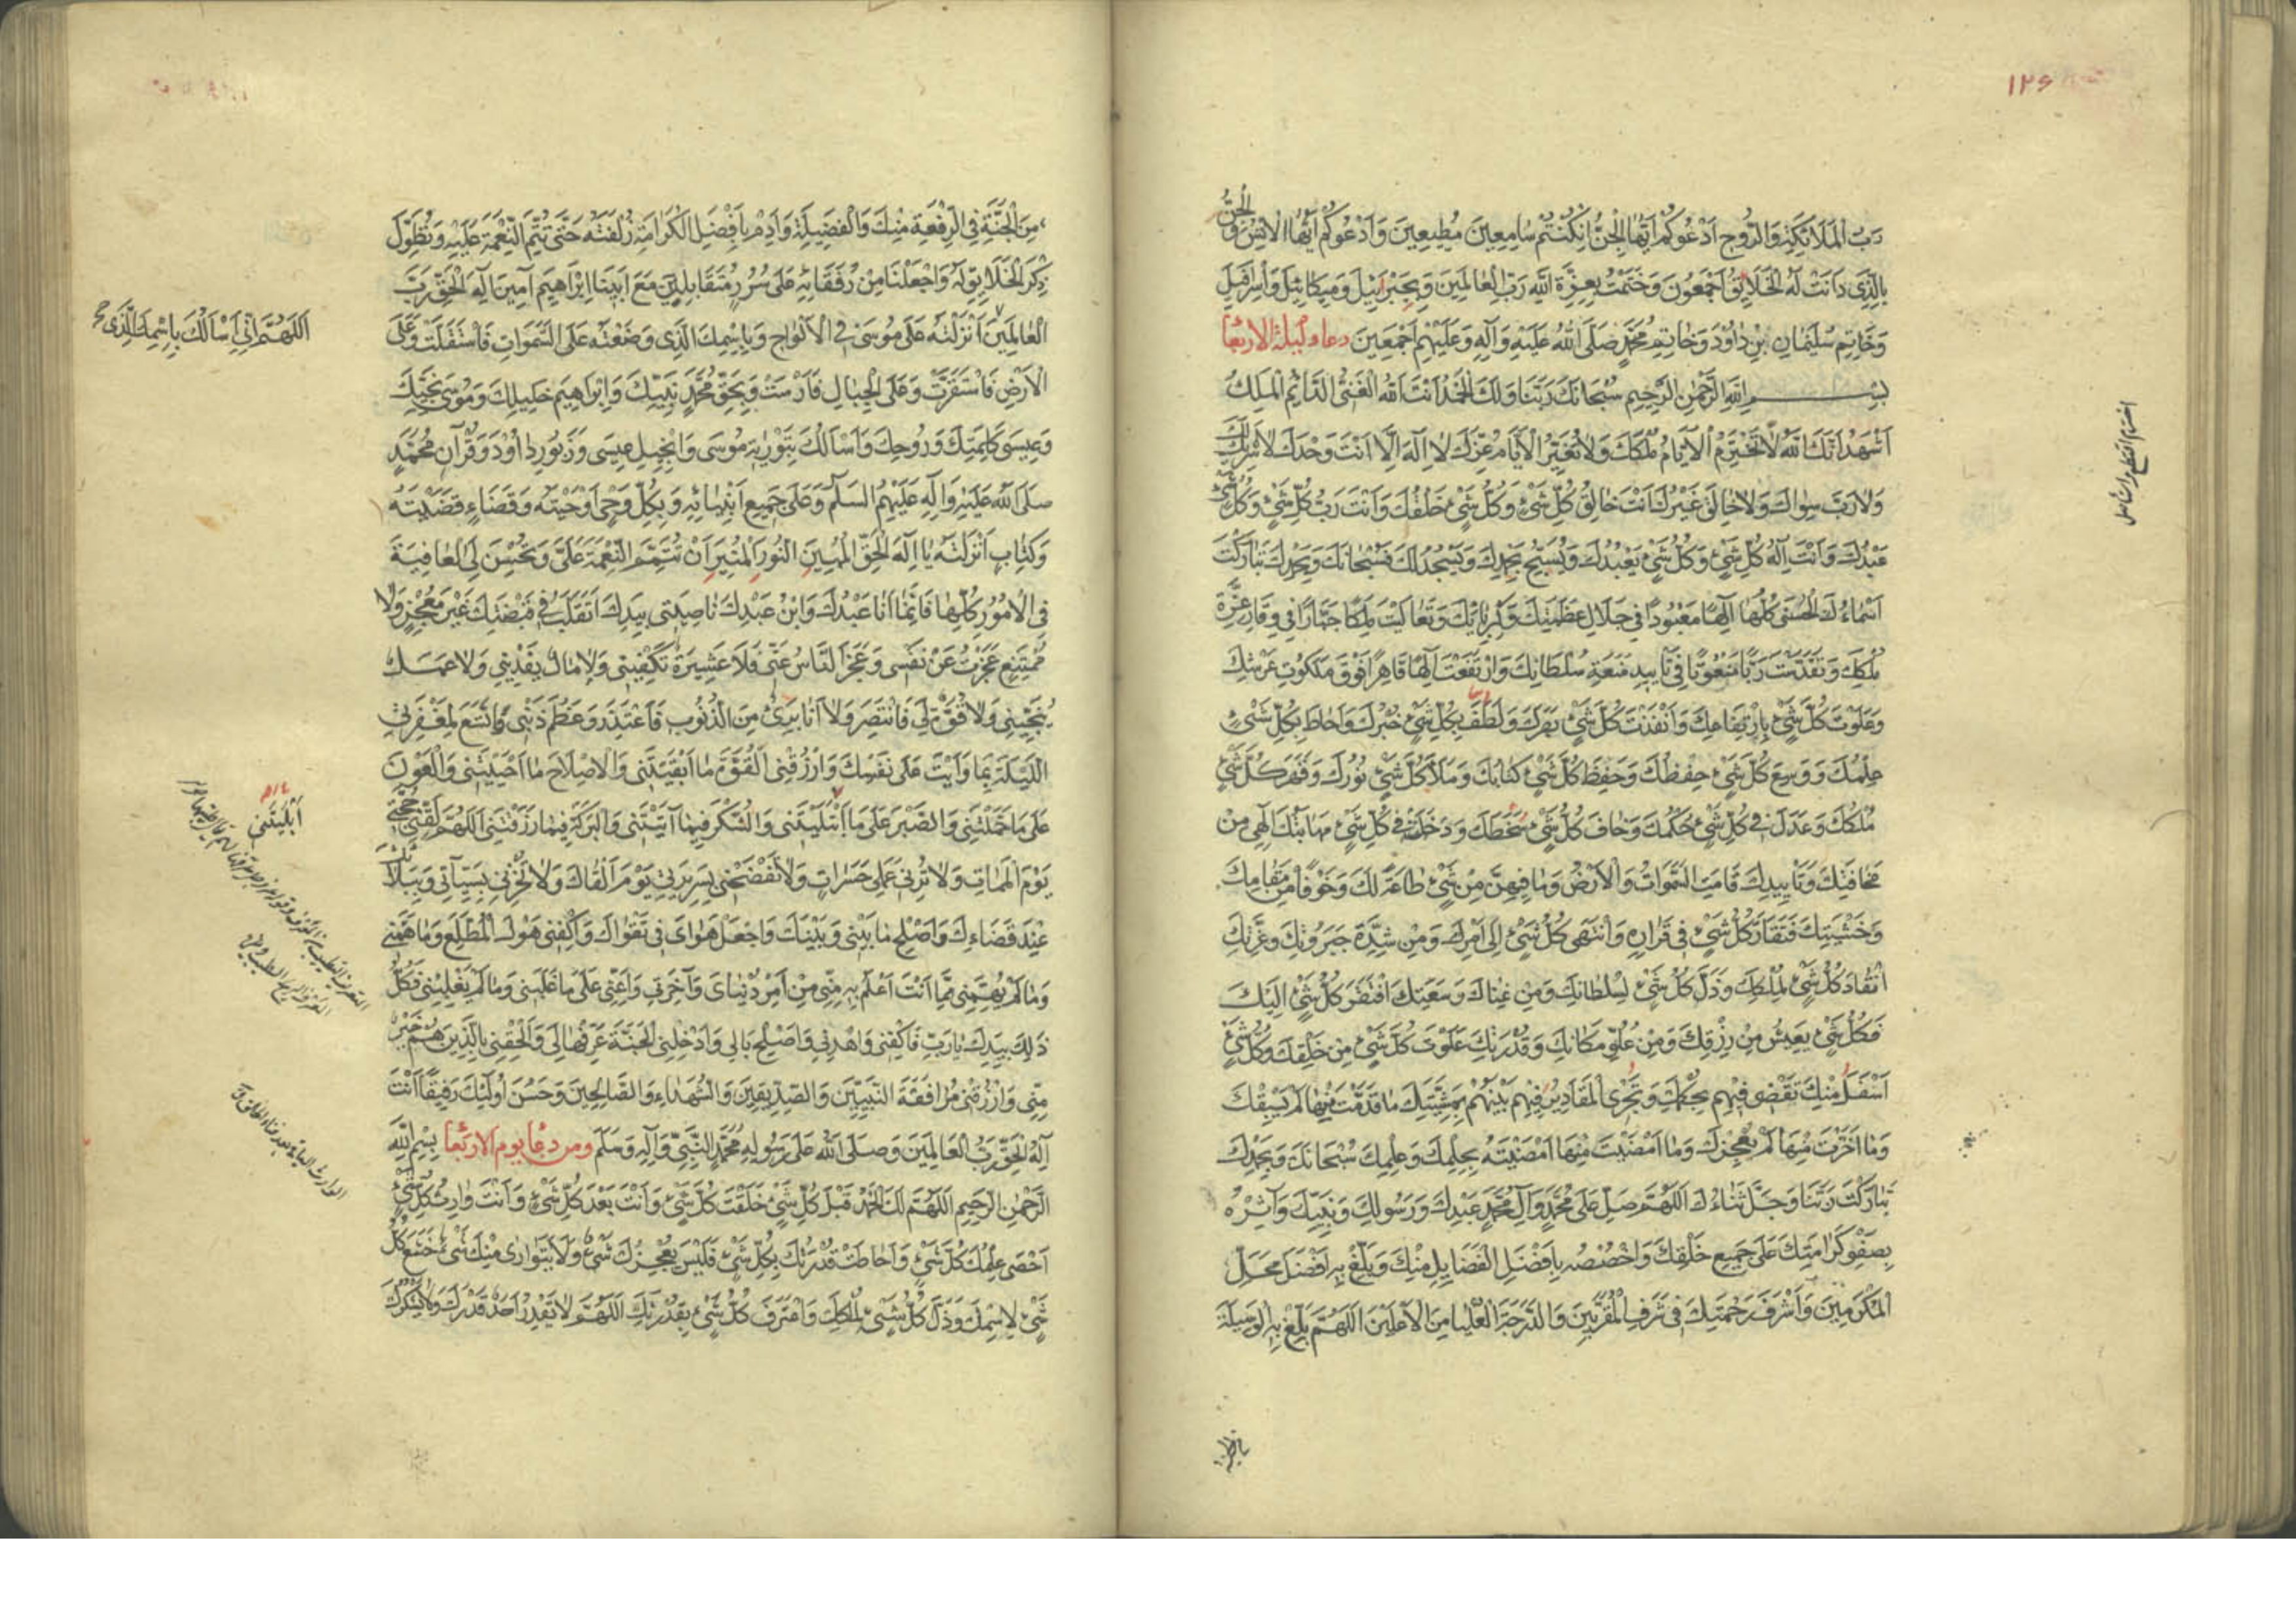 ١٢٦
رَبُّ الْمَلَائِكَةِ وَالرُّوحِ اَدْعُوكُمْ اَيُّهَا الْجِنُّ اِنْ كُنْتُمْ سَامِعِينَ مُطِيعِينَ وَاَدْعُوكُمْ اَيُّهَا الْاِنْسُ وَالْجِنُّ
بِالَّذِى دَانَتْ لَهُ الْخَلَايِقُ اَجْمَعُونَ وَخَتَمْتُ بِعِزَّةِ اللّٰهِ رَبِّ الْعَالَمِينَ وَبِجَبْرَاِئيلَ وَمِيكَائِيلَ وَاِسْرَافِيلَ
وَخَاتِمِ سُلَيْمَانِ بْنِ دَاوُدَ وَخَاتِمِ مُحَمَّدٍ صَلَّى اللّٰهُ عَلَيْهِ وَآلِهِ وَعَلَيْهِمْ اَجْمَعِينَ دعاء ليلة الاربعا
بِسْمِ اللّٰهِ الرَّحْمٰنِ الرَّحِيمِ سُبْحَانَكَ رَبَّنَا وَلَكَ الْحَمْدُ اَنْتَ اللّٰهُ الْغَنِىُّ الدَّائِمُ الْمَلِكُ
اَشْهَدُ اَنَّكَ اللّٰهُ لَا تَخْتَرِمُ الْاَيَّامُ مُلْكَكَ وَلَا تُغَيِّرُ الْاَيَّامُ عِزَّكَ لَا اِلٰهَ اِلَّا اَنْتَ وَحْدَكَ لَا شَرِيكَ لَكَ
وَلَا رَبَّ سِوَاكَ وَلَا خَالِقَ غَيْرُكَ اَنْتَ خَالِقُ كُلِّ شَىْءٍ وَكُلُّ شَىْءٍ خَلْقُكَ وَاَنْتَ رَبُّ كُلِّ شَىْءٍ وَكُلُّ شَىْءٍ
عَبْدُكَ وَاَنْتَ اِلٰهُ كُلِّ شَىْءٍ وَكُلُّ شَىْءٍ يَعْبُدُكَ وَيُسَبِّحُ بِحَمْدِكَ وَيَسْجُدُ لَكَ فَسُبْحَانَكَ وَبِحَمْدِكَ تَبَارَكْتَ
اَسْمَاءُكَ الْحُسْنَى كُلُّهَا اِلٰهًا مَعْبُودًا فِى جَلَالِ عَظَمَتِكَ وَكِبْرِيَائِكَ وَتَعَالَيْتَ مَلِكًا جَبَّارًا فِى وَقَارِ عِزَّةِ
مُلْكِكَ وَتَقَدَّسْتَ رَبًّا مَنْعُوتًا فِى تَاْيِيدِ مَنَعَةِ سُلْطَانِكَ وَارْتَفَعْتَ اِلٰهًا قَاهِرًا فَوْقَ مَلَكُوتِ عَرْشِكَ
وَعَلَوْتَ كُلَّ شَىْءٍ بِارْتِفَاعِكَ وَاَنْفَذْتَ كُلَّ شَىْءٍ بَصَرَكَ وَلَطُفَ بِكُلِّ شَىْءٍ خُبْرُكَ وَاَحَاطَ بِكُلِّ شَىْءٍ
عِلْمُكَ وَوَسِعَ كُلَّ شَىْءٍ حِفْظُكَ وَحَفِظَ كُلَّ شَىْءٍ كِتَابُكَ وَمَلَاَ كُلَّ شَىْءٍ نُورُكَ وَقَهَرَ كُلَّ شَىْءٍ
مُلْكُكَ وَعَدَلَ فِى كُلِّ شَىْءٍ حُكْمُكَ وَخَافَ كُلُّ شَىْءٍ سَخَطَكَ وَدَخَلَتْ فِى كُلِّ شَىْءٍ مَهَابَتُكَ اِلٰهِى مِنْ
مَخَافَتِكَ وَتَاْيِيدِكَ قَامَتِ السَّمٰوَاتُ وَالْاَرْضُ وَمَا فِيهِنَّ مِنْ شَىْءٍ طَاعَةً لَكَ وَخَوْفًا مِنْ مَقَامِكَ
وَخَشْيَتِكَ فَتَقَارَّ كُلُّ شَىْءٍ فِى قَرَارِهِ وَانْتَهَى كُلُّ شَىْءٍ اِلَى اَمْرِكَ وَمِنْ شِدَّةِ جَبَرُوتِكَ وَعِزَّتِكَ
انْقَادَ كُلُّ شَىْءٍ لِمُلْكِكَ وَذَلَّ كُلُّ شَىْءٍ لِسُلْطَانِكَ وَمِنْ غِنَاكَ وَسَعَتِكَ افْتَقَرَ كُلُّ شَىْءٍ اِلَيْكَ
فَكُلُّ شَىْءٍ يَعِيشُ مِنْ رِزْقِكَ وَمِنْ عُلُوِّ مَكَانِكَ وَقُدْرَتِكَ عَلَوْتَ كُلَّ شَىْءٍ مِنْ خَلْقِكَ وَكُلُّ شَىْءٍ
اَسْفَلُ مِنْكَ تَقْضِى فِيهِمْ بِحُكْمِكَ وَتَجْرِى الْمَقَادِيرُ فِيهِمْ بَيْنَهُمْ بِمَشِيَّتِكَ مَا قَدَّمْتَ مِنْهَا لَمْ يَسْبِقْكَ
وَمَا اَخَّرْتَ مِنْهَا لَمْ يُعْجِزْكَ وَمَا اَمْضَيْتَ مِنْهَا اَمْضَيْتَهُ بِحُكْمِكَ وَعِلْمِكَ سُبْحَانَكَ وَبِحَمْدِكَ
تَبَارَكْتَ رَبَّنَا وَجَلَّ ثَنَاءُكَ اَللّٰهُمَّ صَلِّ عَلَى مُحَمَّدٍ وَآلِ مُحَمَّدٍ عَبْدِكَ وَرَسُولِكَ وَنَبِيِّكَ وَآثِرْهُ
بِصَفْوِ كَرَامَتِكَ عَلَى جَمِيعِ خَلْقِكَ وَاخْصُصْهُ بِاَفْضَلِ الْفَضَايِلِ مِنْكَ وَبَلِّغْ بِهِ اَفْضَلَ مَحَلِّ
الْمُكَرَّمِينَ وَاَشْرَفَ رَحْمَتِكَ فِى شَرَفِ الْمُقَرَّبِينَ وَالدَّرَجَةِ الْعُلْيَا مِنَ الْاَعْلَيْنَ اَللّٰهُمَّ بَلِّغْ بِهِ الْوَسِيلَةَ
مِنَ الْجَنَّةِ فِى الرِّفْعَةِ مِنْكَ وَالْفَضِيلَةِ وَاَدِمْ بِاَفْضَلِ الْكَرَامَةِ زُلْفَتَهُ حَتَّى تُتِمَّ النِّعْمَةَ عَلَيْهِ وَتُطَوِّلَ
ذِكْرَ الْخَلَايِقِ لَهُ وَاجْعَلْنَا مِنْ رُفَقَائِهِ عَلَى سُرُرٍ مُتَقَابِلِينَ مَعَ اَبِينَا اِبْرَاهِيمَ آمِينَ اِلٰهَ الْحَقِّ رَبَّ
الْعَالَمِينَ اَنْزَلْتَهُ عَلَى مُوسَى فِى الْاَلْوَاحِ وَبِاسْمِكَ الَّذِى وَضَعْتَهُ عَلَى السَّمٰوَاتِ فَاسْتَقَلَّتْ وَعَلَى
اَللّٰهُمَّ اِنِّى اَسْاَلُكَ بِاسْمِكَ الَّذِى
الْاَرْضِ فَاسْتَقَرَّتْ وَعَلَى الْجِبَالِ فَاَرْسَتْ وَبِحَقِّ مُحَمَّدٍ نَبِيِّكَ وَاِبْرَاهِيمَ خَلِيلِكَ وَمُوسَى نَجِيِّكَ
وَعِيسَى كَلِمَتِكَ وَرُوحِكَ وَاَسْاَلُكَ بِتَوْرٰيةِ مُوسَى وَاِنْجِيلِ عِيسَى وَزَبُورِ دَاوُدَ وَقُرْآنِ مُحَمَّدٍ
صَلَّى اللّٰهُ عَلَيْهِ وَآلِهِ عَلَيْهِمُ السَّلَمُ وَعَلَى جَمِيعِ اَنْبِيَائِهِ وَبِكُلِّ وَحْىٍ اَوْحَيْتَهُ وَقَضَاءٍ قَضَيْتَهُ
وَكِتَابٍ اَنْزَلْتَهُ يَا اِلٰهَ الْحَقِّ الْمُبِينِ النُّورَ الْمُنِيرَ اَنْ تُتَمِّمَ النِّعْمَةَ عَلَىَّ وَتُحْسِنَ لِىَ الْعَافِيَةَ
فِى الْاُمُورِ كُلِّهَا فَاِنَّمَا اَنَا عَبْدُكَ وَابْنُ عَبْدِكَ نَاصِيَتِى بِيَدِكَ اَتَقَلَّبُ فِى قَبْضَتِكَ غَيْرَ مُعْجِزٍ وَلَا
مُمْتَنِعٍ عَجَزْتُ عَنْ نَفْسِى وَعَجَزَ النَّاسُ عَنِّى فَلَا عَشِيرَةٌ تَكْفِينِى وَلَا مَالٌ يَفْدِينِى وَلَا عَمَلٌ
يُنْجِينِى وَلَا قُوَّةٌ لِى فَاَنْتَصِرَ وَلَا اَنَا بَرِىءٌ مِنَ الذُّنُوبِ فَاَعْتَذِرَ وَعَظُمَ ذَنْبِى لِمَغْفِرَتِى
اللَّيْلَةَ بِمَا وَاَيْتَ عَلَى نَفْسِكَ وَارْزُقْنِى الْقُوَّةَ مَا اَبْقَيْتَنِى وَالْاِصْلَاحَ مَا اَحْيَيْتَنِى وَالْعَوْنَ
عَلَى مَا حَمَّلْتَنِى وَالصَّبْرَ عَلَى مَا ابْتَلَيْتَنِى وَالشُّكْرَ فِيمَا آتَيْتَنِى وَالْبَرَكَةَ فِيمَا رَزَقْتَنِى اَللّٰهُمَّ لَقِّنِى حُجَّتِى
اَبْلَيْتَنِى
يَوْمَ الْمَمَاتِ وَلَا تُرِنِى عَمَلِى حَسَرَاتٍ وَلَا تَفْضَحْنِى بِسَرِيرَتِى يَوْمَ اَلْقَاكَ وَلَا تُخْزِنِى بِسَيِّئَاتِى وَبِبَلَاءٍ
عِنْدَ قَضَاءِكَ وَاَصْلِحْ مَا بَيْنِى وَبَيْنَكَ وَاجْعَلْ هَوَاىَ فِى تَقْوَاكَ وَاكْفِنِى هَوْلَ الْمُطَّلَعِ وَمَا هَمَّنِى
وَمَا لَمْ يُهِمَّنِى مِمَّا اَنْتَ اَعْلَمُ بِهِ مِنِّى مِنْ اَمْرِ دُنْيَاىَ وَآخِرَتِى وَاَعِنِّى عَلَى مَا غَلَبَنِى وَمَا لَمْ يَغْلِبْنِى فَكُلُّ
ذٰلِكَ بِيَدِكَ يَا رَبِّ فَاكْفِنِى وَاهْدِنِى وَاَصْلِحْ بَالِى وَاَدْخِلْنِى الْجَنَّةَ عَرِّفْهَا لِى وَاَلْحِقْنِى بِالَّذِينَ هُمْ خَيْرٌ
مِنِّى وَارْزُقْنِى مُرَافَقَةَ النَّبِيِّينَ وَالصِّدِّيقِينَ وَالشُّهَدَاءِ وَالصَّالِحِينَ وَحَسُنَ اُولٰئِكَ رَفِيقًا اَنْتَ
اِلٰهُ الْحَقِّ رَبُّ الْعَالَمِينَ وَصَلَّى اللّٰهُ عَلَى رَسُولِهِ مُحَمَّدٍ النَّبِىِّ وَآلِهِ وَسَلَّمَ ومن دعا يوم الاربعا بِسْمِ اللّٰهِ
الرَّحْمٰنِ الرَّحِيمِ اَللّٰهُمَّ لَكَ الْحَمْدُ قَبْلَ كُلِّ شَىْءٍ خَلَقْتَ كُلَّ شَىْءٍ وَاَنْتَ بَعْدَ كُلِّ شَىْءٍ وَاَنْتَ وَارِثُ كُلِّ شَىْءٍ
اَحْصَى عِلْمُكَ كُلَّ شَىْءٍ وَاَحَاطَتْ قُدْرَتُكَ بِكُلِّ شَىْءٍ فَلَيْسَ يُعْجِزُكَ شَىْءٌ وَلَا يَتَوَارَى مِنْكَ شَىْءٌ خَشَعَ كُلُّ
شَىْءٍ لِاسْمِكَ وَذَلَّ كُلُّ شَىْءٍ لِمُلْكِكَ وَاعْتَرَفَ كُلُّ شَىْءٍ بِقُدْرَتِكَ اَللّٰهُمَّ لَا يَقْدِرُ اَحَدٌ قَدْرَكَ وَلَا يَشْكُرُكَ